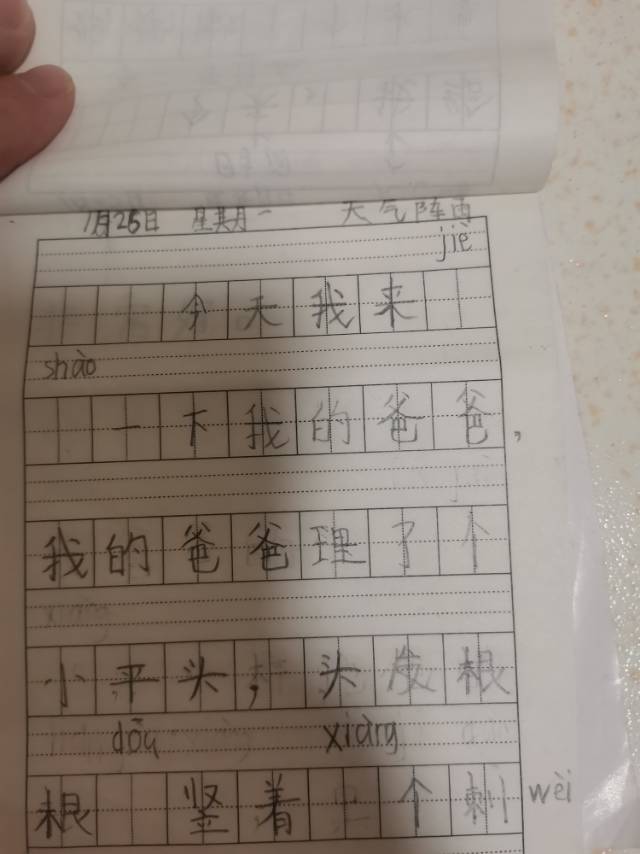 7月26日 星期一 天气阵雨
jiè
今天我来
shào
一下我的爸爸,
我的爸爸理了个
小平头,头发根
dōu xiàng
根 竖着 个刺 wèi